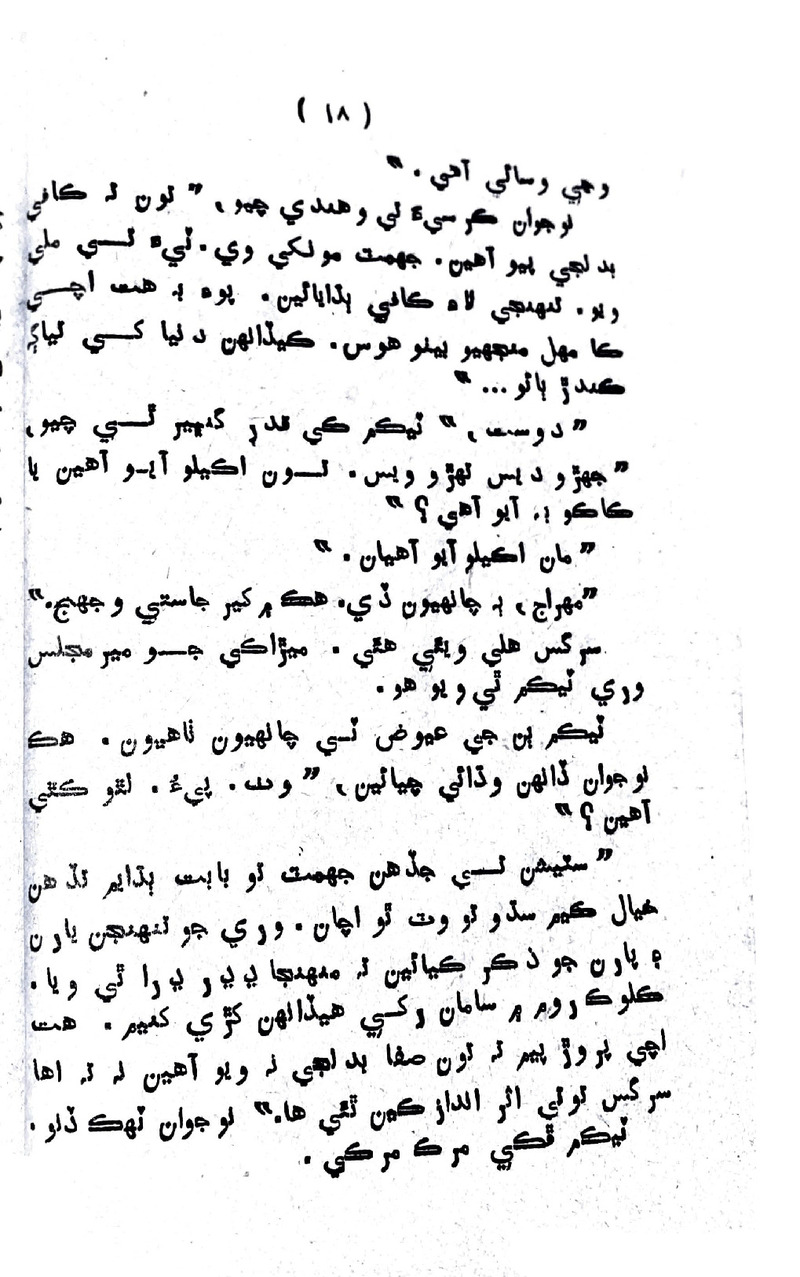 ( ١٨ )
وڃي وسائي آهي . ”
نوجوان ڪرسيءَ تي وهندي چيو، ” تون تہ ڪافي
بدلجي ويو آهين. جهمت مونکي وي. ٽيءَ تــي ملي
ويو. تنهنجي لاءِ ڪافي ٻڌايائين. پوءِ بہ هت اچــي
ڪا مهل منجهيو بيٺو هوس. ڪيڏانهن دنيا کــي ٿياڳ
ڪندڙ ٻائو... ”
” دوست، ” ٽيڪم ڪي قدر گنڀير ٿــي چيو،
” جهڙو ديس تهڙو ويس. تــون اڪيلو آيو آهين يا
ڪاڪو بہ آيو آهي ؟ ”
” مان اڪيلو آيو آهيان . ”
”مهراج، ٻہ چانهيون ڏي. هڪ ۾ کير جاستي وجهج.”
سرگس هلي ويئي هئي . ميڙاڪي جــو مير مجلس
وري ٽيڪم ٿي ويو هو.
ٽيڪم ٻن جي عيوض ٽــي چانهيون ٺاهيون . هڪ
نوجوان ڏانهن وڌائي چيائين، ” وٺ. پيءُ . لٿو ڪٿي
آهين ؟ ”
” سٽيشن تــي جڏهن جهمت تو بابت ٻڌايم تڏهن
خيال ڪيم سڌو تو وٽ ٿو اچان . وري جو تنهنجن يارن
۽ پارن جو ذڪر ڪيائين تہ منهنجا ڊيڊر ڊرا ٿي ويا.
ڪلوڪ روم ۾ سامان رکــي هيڏانهن کڙي کنيم . هت
اچي پروڙ پيم تہ تون صفا بدلجي نہ ويو آهين نہ تہ اها
سرگس توتي اثر انداز ڪين ٿئي ها.” نوجوان ٽهڪ ڏنو .
ٽيڪم ڦڪي مرڪ مرڪي .